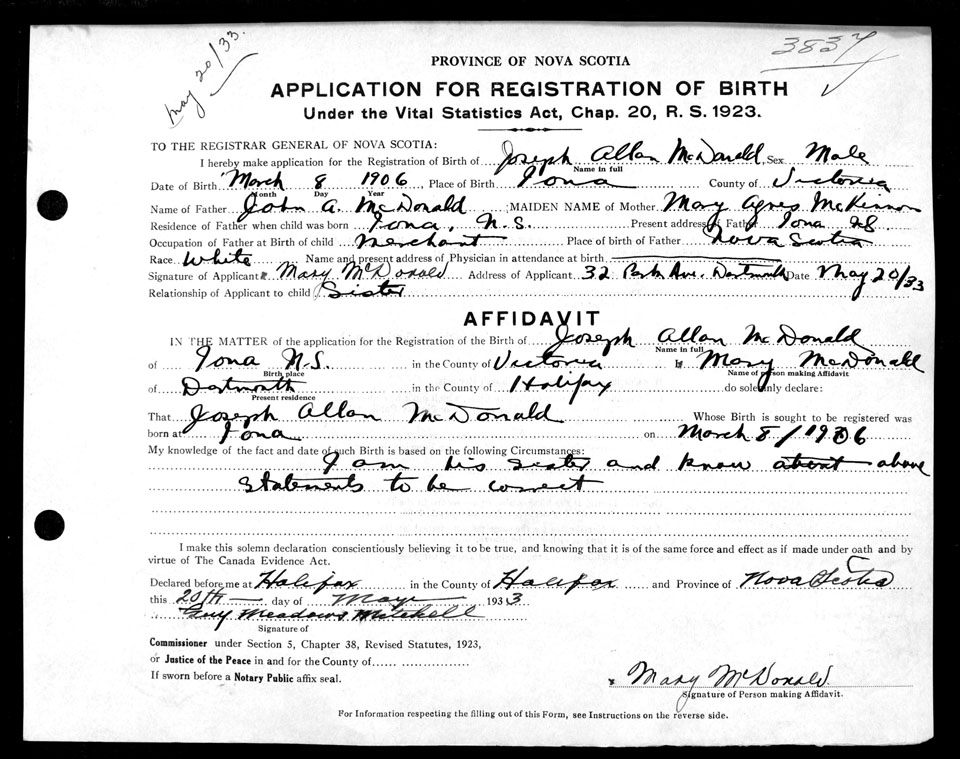 May 20/33.
3837
PROVINCE OF NOVA SCOTIA
APPLICATION FOR REGISTRATION OF BIRTH
Under the Vital Statistics Act, Chap. 20, R. S. 1923.
TO THE REGISTRAR GENERAL OF NOVA SCOTIA:
I hereby make application for the Registration of Birth of Joseph Allan McDonald Sex Male
Name in full
Date of Birth March 8 1906 Place of Birth Iona County of Victoria
Month Day Year
Name of Father John A. McDonald MAIDEN NAME of Mother Mary Agnes McKinnon
Residence of Father when child was born Iona, N.S. Present address of Father Iona NS
Occupation of Father at Birth of child Merchant Place of birth of Father Nova Scotia
Race White Name and present address of Physician in attendance at birth
Signature of Applicant Mary McDonald Address of Applicant 32 Park Ave. Dartmouth Date May 20/33
Relationship of Applicant to child Sister
AFFIDAVIT
IN THE MATTER of the application for the Registration of the Birth of Joseph Allan McDonald
Name in full
of Iona N.S. in the County of Victoria I Mary McDonald
Birth place Name of person making Affidavit
of Dartmouth in the County of Halifax do solemnly declare:
Present residence
That Joseph Allan McDonald Whose Birth is sought to be registered was
born at Iona on March 8/1906
My knowledge of the fact and date of such Birth is based on the following Circumstances:
I am his sister and know about above
statements to be correct
I make this solemn declaration conscientiously believing it to be true, and knowing that it is of the same force and effect as if made under oath and by
virtue of The Canada Evidence Act.
Declared before me at Halifax in the County of Halifax and Province of Nova Scotia
this 20th day of May 1933
Guy Meadows Mitchell
Signature of
Commissioner under Section 5, Chapter 38, Revised Statutes, 1923,
or Justice of the Peace in and for the County of
If sworn before a Notary Public affix seal.
Mary McDonald.
Signature of Person making Affidavit.
For Information respecting the filling out of this Form, see Instructions on the reverse side.